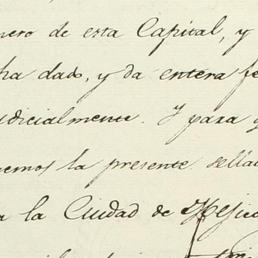 nero de esta Capital, y
ha dado, y da entera fe
udicialmente. Y para q
emos la presente sella
a la Ciudad de Mejic